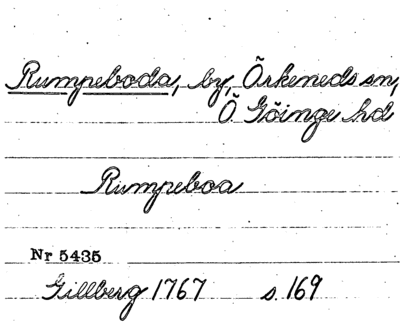 Rumpeboda, by, Örkeneds sn,
Ö. Göinge hd
Rumpeboa
Nr 5435
Gillberg 1767 s. 169